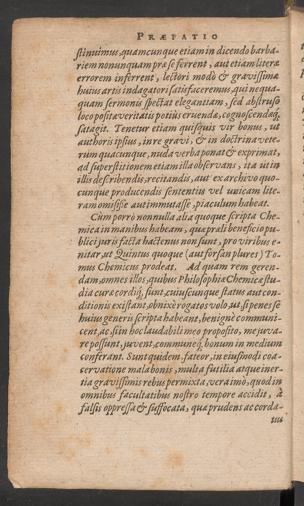 PRÆFATIO
stinuimus, quamcunque etiam in dicendo barba-
riem nonunquam præ se ferrent, aut etiam literæ
errorem inferrent, lectori modò & gravissimæ
huius artis indagatori satisfaceremus, qui nequa-
quam sermonis spectat elegantiam, sed abstruso
loco posita veritatis potiùs eruenda, cognoscendaq́;
satagit. Tenetur etiam quisquis vir bonus, ut
authoris ipsius, in re gravi, & in doctrina vete-
rum quacunque, nuda verba ponat & exprimat,
ad superstitionem etiam illa observans, ita ut in
illis describendis, recitandis, aut ex archivo quo-
cunque producendis sententiis vel unicam lite-
ram omisisse aut immutasse, piaculum habeat.
Cùm porrò nonnulla alia quoque scripta Che-
mica in manibus habeam, quæ præli beneficio pu-
blici juris facta hactenus non sunt, pro viribus e-
nitar, ut Quintus quoque (aut forsan plures) To-
mus Chemicus prodeat. Ad quam rem geren-
dam, omnes illos, quibus Philosophiæ Chemicæ stu-
dia curæ cordiq́; sunt, cuiuscunque status aut con-
ditionis existant, obnixè rogatos volo, ut si penes se
huius generis scripta habeant, benignè communi-
cent, ac si in hoc laudabili meo proposito, me juva-
re possunt, juvent, communeq́; bonum in medium
conferant. Sunt quidem, fateor, in eiusmodi coa-
cervatione mala bonis, multa futilia atque iner-
tia gravissimis rebus permixta, vera imò, quod in
omnibus facultatibus nostro tempore accidit, à
falsis oppressa & suffocata, quæ prudens ac corda-
tus